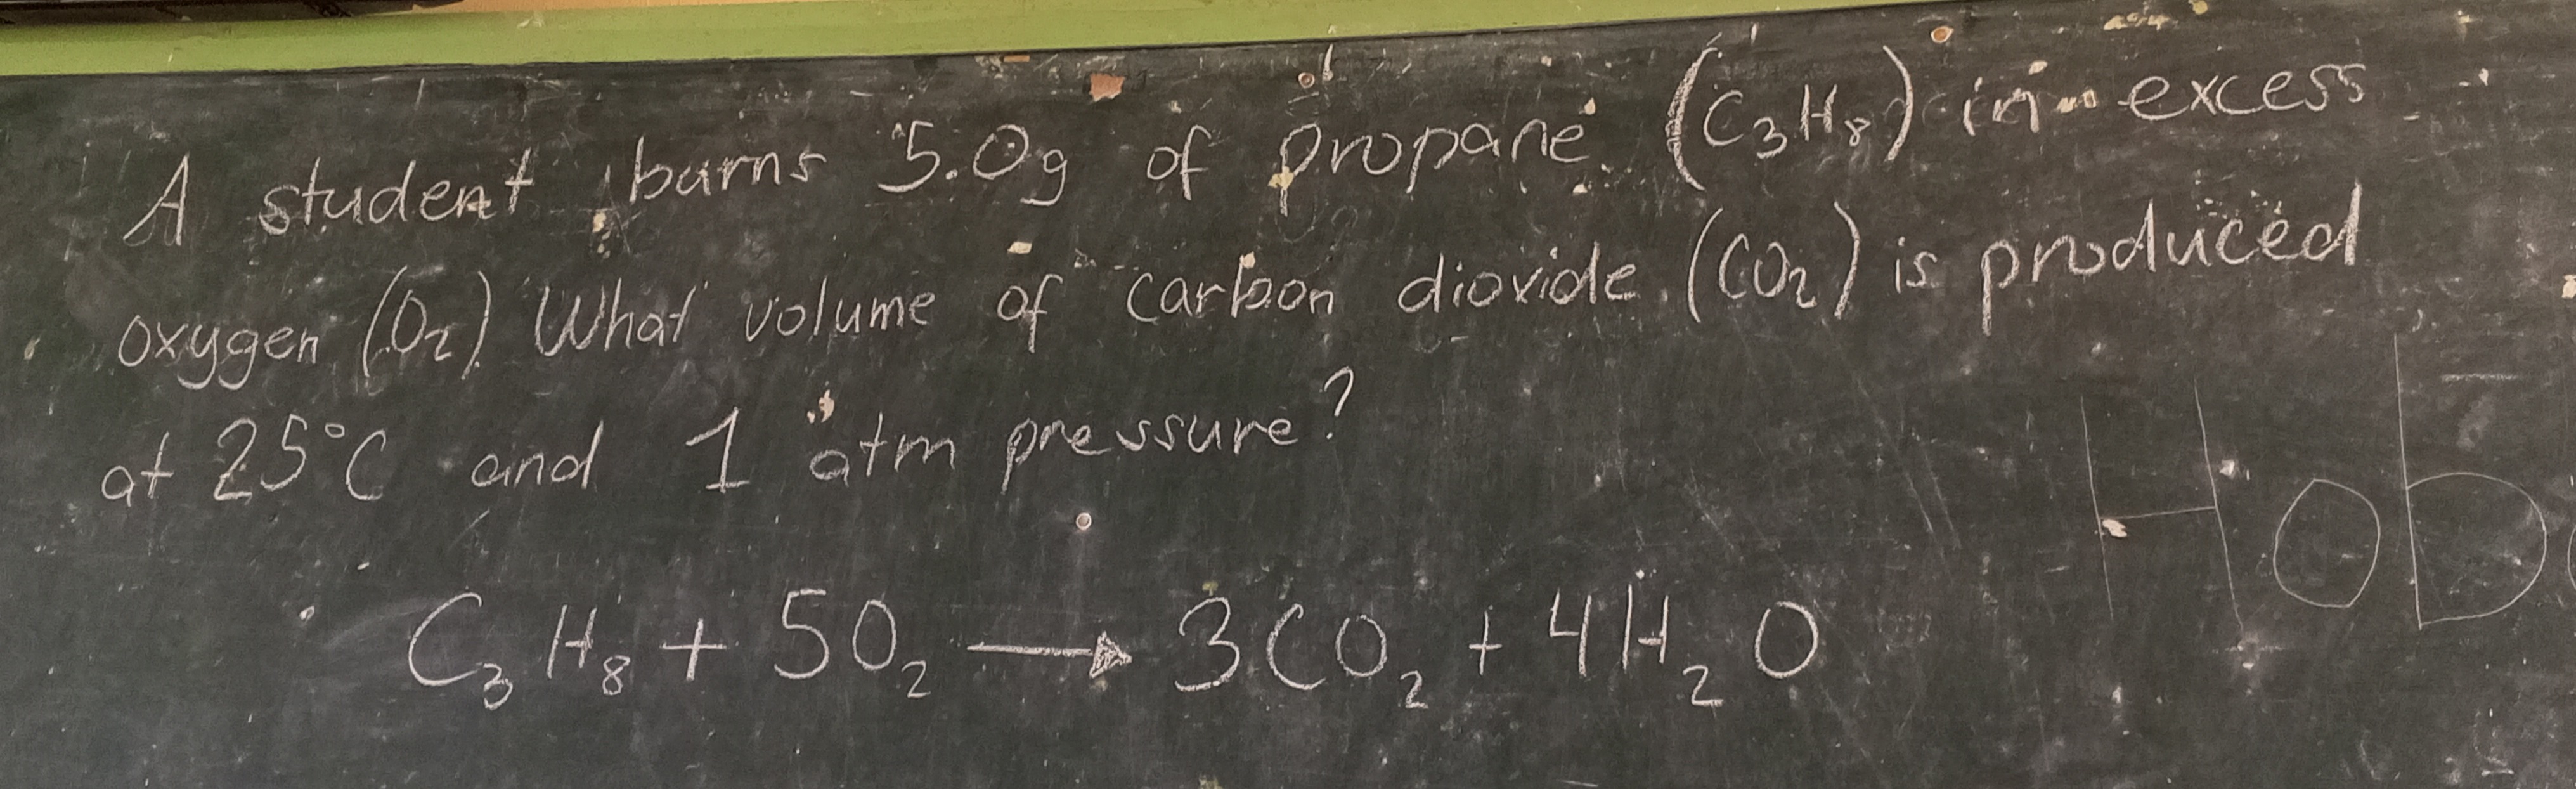 A student burns 5.0g of propane (C₃H₈) in excess
oxygen (O₂). What volume of carbon dioxide (CO₂) is produced
at 25°C and 1 atm pressure?
C₃H₈ + 5O₂ → 3CO₂ + 4H₂O
Hob